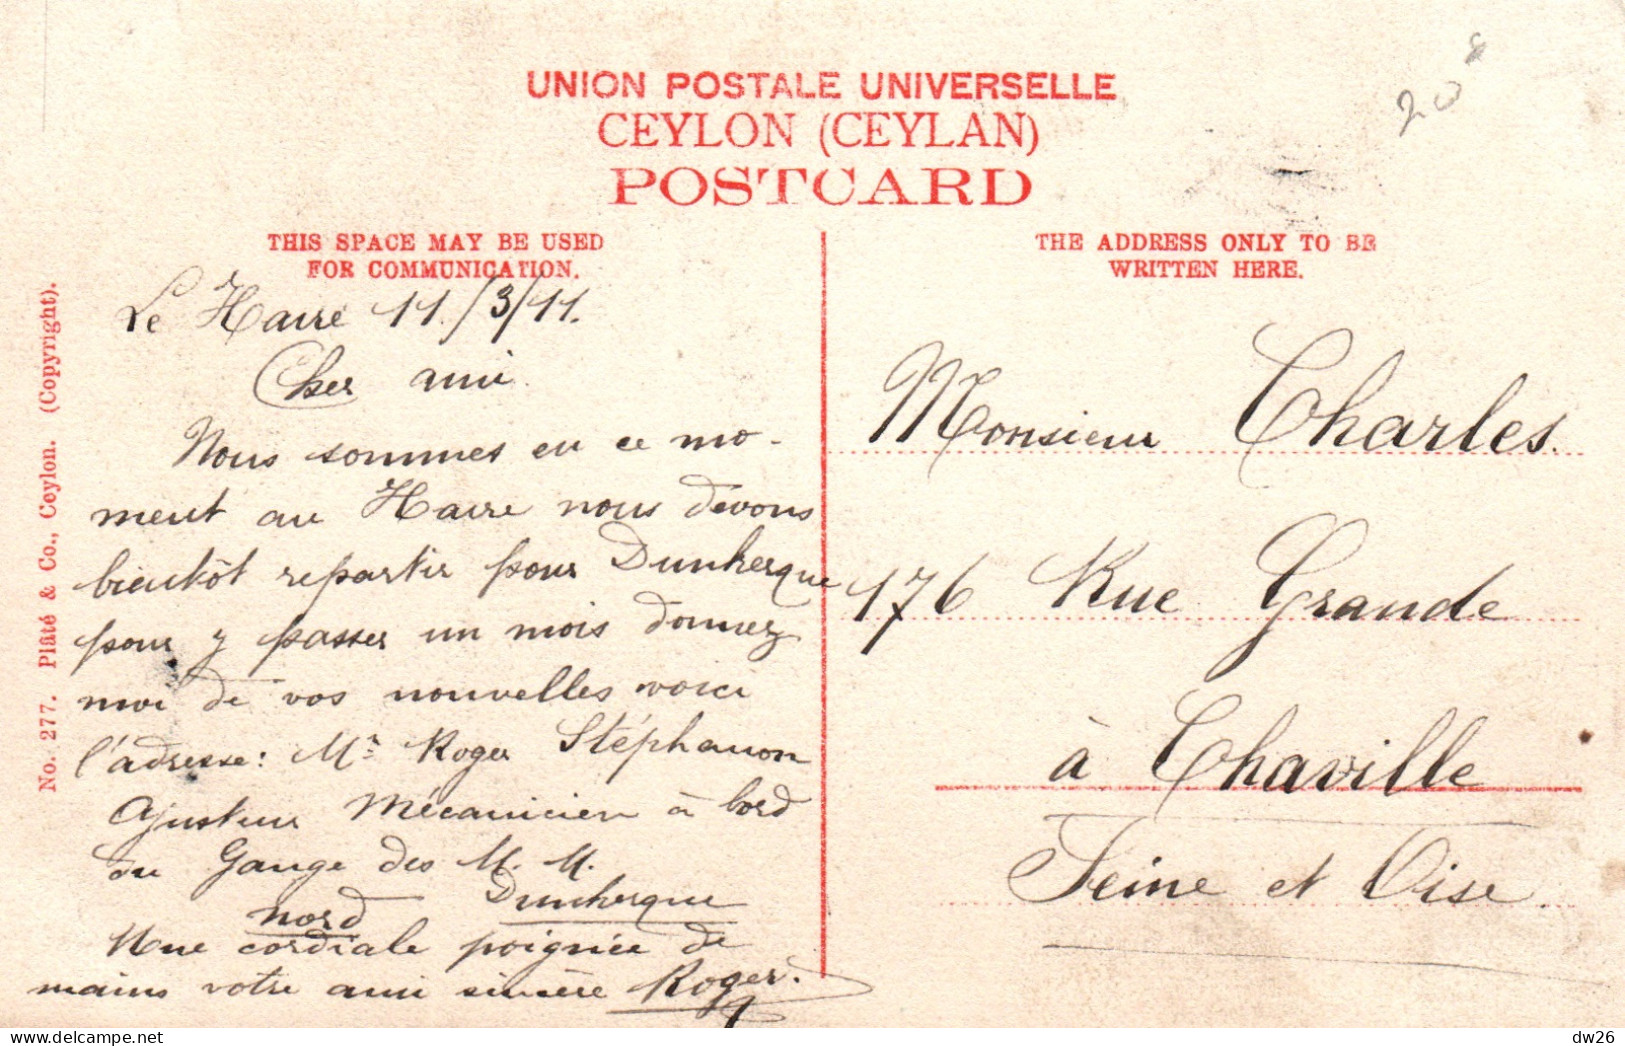 20
UNION POSTALE UNIVERSELLE
CEYLON (CEYLAN)
POSTCARD
THIS SPACE MAY BE USED
FOR COMMUNICATION.
THE ADDRESS ONLY TO BE
WRITTEN HERE.
No. 277. Plâté & Co., Ceylon. (Copyright).
Le Havre 11./3/11.
Cher ami.
Nous sommes en ce mo-
ment au Havre nous devons
bientôt repartir pour Dunkerque
pour y passer un mois donnez
moi de vos nouvelles voici
l'adresse: Mr Roger Stéphanon
Ajusteur Mécanicien à bord
du Gange des M. M.
Dunkerque
nord
Une cordiale poignée de
mains votre ami sincère Roger.
Monsieur Charles.
176 Rue Grande
à Chaville
Seine et Oise.
dw26